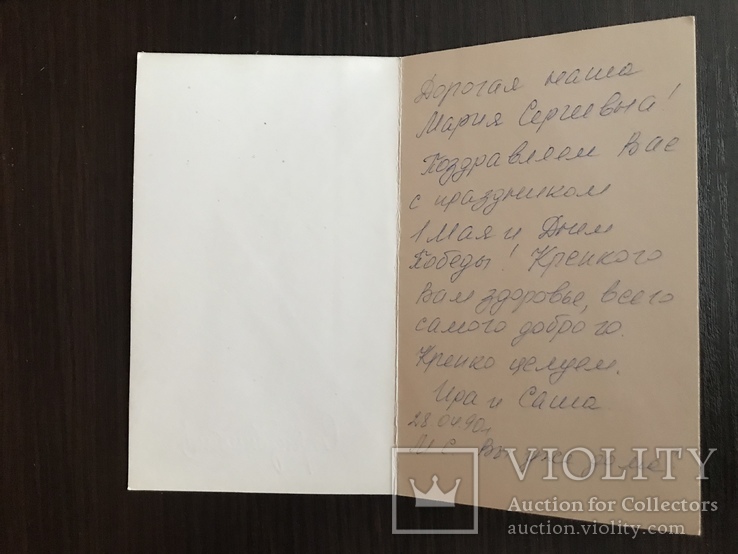 Дорогая наша
Мария Сергеевна!
Поздравляем Вас
с праздником
1 Мая и Днем
Победы! Крепкого
Вам здоровье, всего
самого доброго.
Крепко целуем.
Ира и Саша
28.04.90г
М С
VIOLITY
Auction for Collectors
auction.violity.com